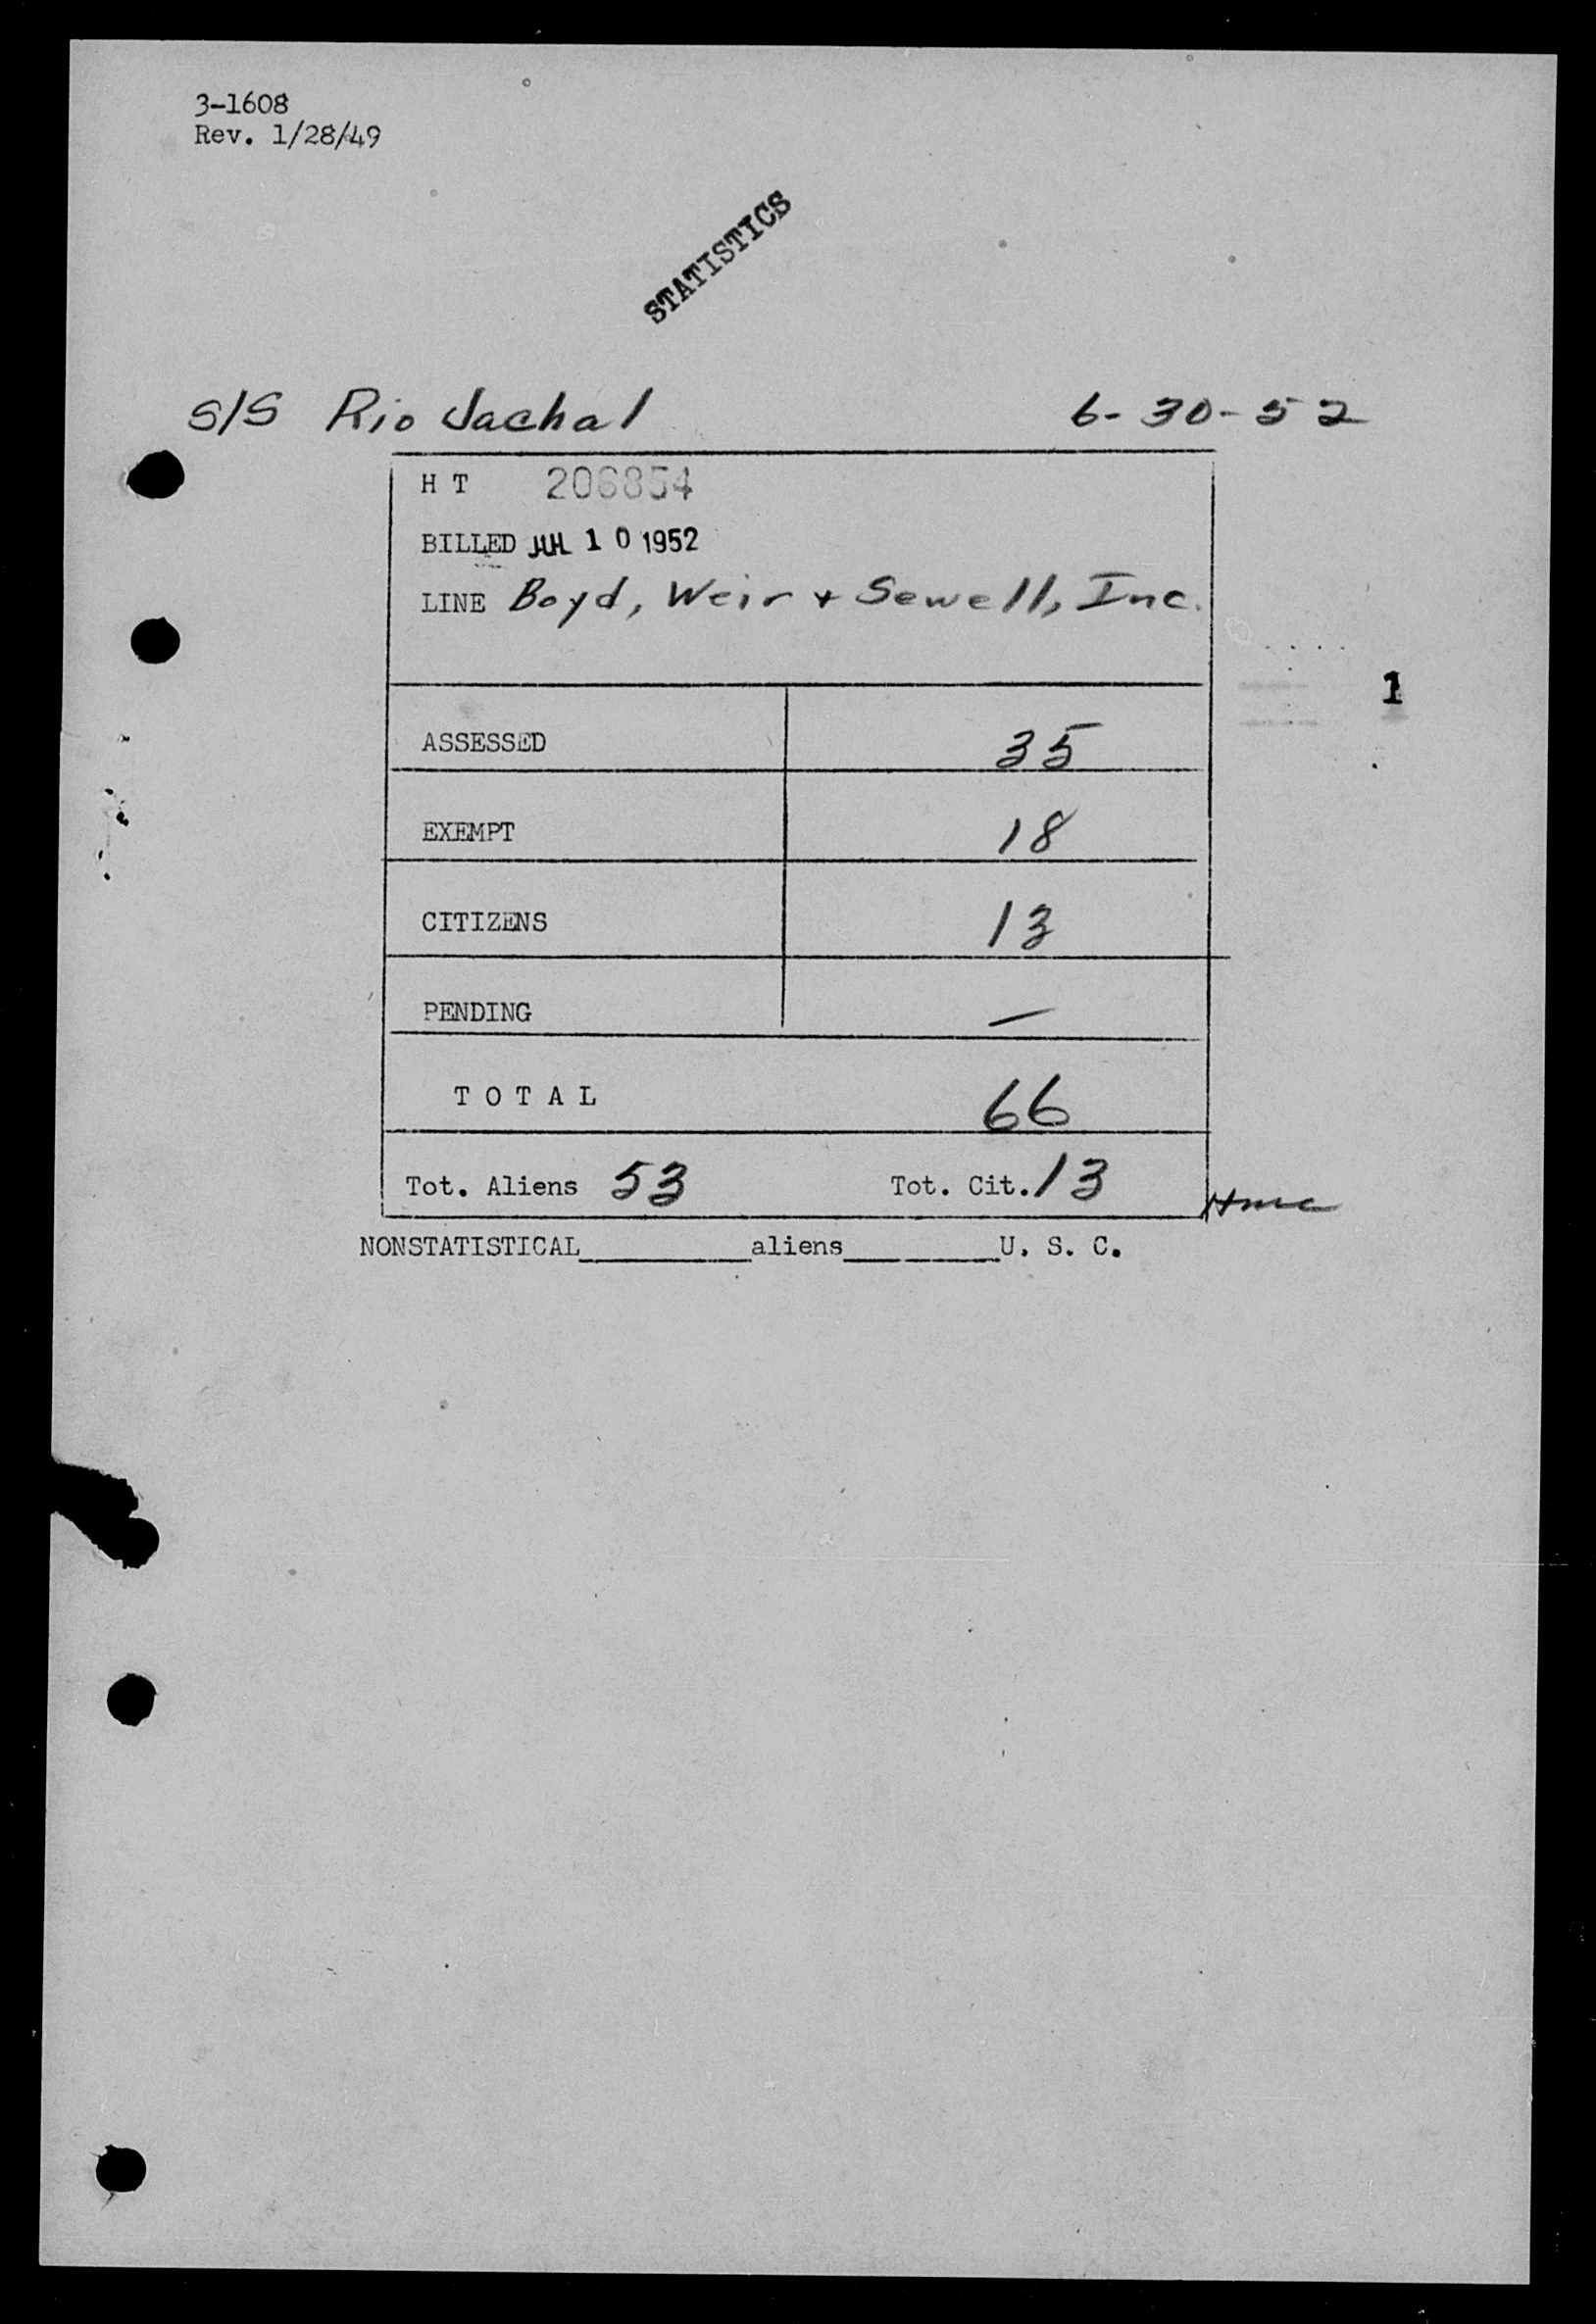 3-1608
Rev. 1/28/49
STATISTICS
S/S Rio Jachal 6-30-52
H T 206854
BILLED JUL 10 1952
LINE Boyd, Weir + Sewell, Inc.
1
ASSESSED 35
EXEMPT 18
CITIZENS 13
PENDING —
T O T A L 66
Tot. Aliens 53 Tot. Cit. 13
NONSTATISTICAL__________aliens__________U. S. C.